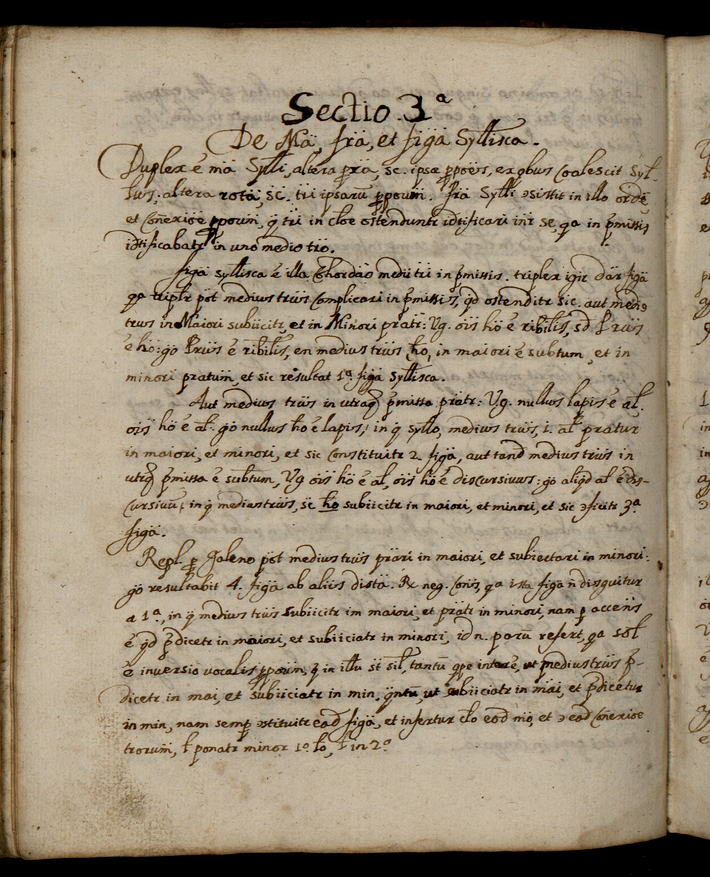 Sectio 3ª
De Mä, frä, et figä Syllisca.
Duplex ē mä Sylli, altera p̄ra, sc. ipsa ppōēs, ex qbus Coalescit Syl-
lus. altera rotä, sc. tri ipsarū ppōum̄. frä Sylli ɔsistit in illo ordē
et Conexioē ppōum̄, q̄ tri in cloē ostenduntr idtificari inr se, qa in p̄missis
idtificabatr in uno medio trō.
figä syllisca ē illa Chordāō medii tri in p̄missis. triplex igr dār figä
qa triplr pōt medius trüs Complicari in p̄missis, qd ostenditr sic. aut mediꝰ
trus in Maiori subiicitr, et in Minori pratr: Vg. oīs hō ē ribilis, sd Prüs
ē hō: gō Prüs ē ribilis, en medius trüs hō, in maiori ē subtum, et in
minori pratum, et sic resultat 1ª figä syllisca.
Aut medius trüs in utraq p̄missa prātr: Vg. nullus lapis ē al.
oīs hō ē al: gō nullus hō ē lapis; in q̄ syllo, medius trüs, i. al pratur
in maiori, et minori, et sic Constituitr 2 figä, aut tand medius trüs in
utrq p̄missa ē subtum, Vg oīs hō ē al, oīs hō ē discursivus: gō aliqd al ē dis-
cursivū; in q̄ medius trüs, sc hō subiicitr in maiori, et minori, et sic ɔficitr 3ª
figä.
Repl. p Galeno pōt medius trüs prāri in maiori, et subiectari in minori:
gō resultabit 4. figä ab aliis distä. Rx neg. Cōnis, qa ista figä n̄ disguitur
a 1ª., in q̄ medius trüs subiicitr in maiori, et prātr in minori, nam p accēns
ē qd p̄dicetr in maiori, et subiiciatr in minori, id n. parū refert, qa sol
ē inversio vocalis ppōum̄, q̄ in illu st sil, tantū qpe interē, ut medius trüs p̄-
dicetr in mai, et subiiciatr in min, qntū, ut subiiciatr in mai, et p̄dicetur
in min, nam semp ɔstituitr eād figä, et infertur clo eōd mō, et ɔ eād Conexioē
trorum, ł ponatr minor 1º lo, ł in 2º